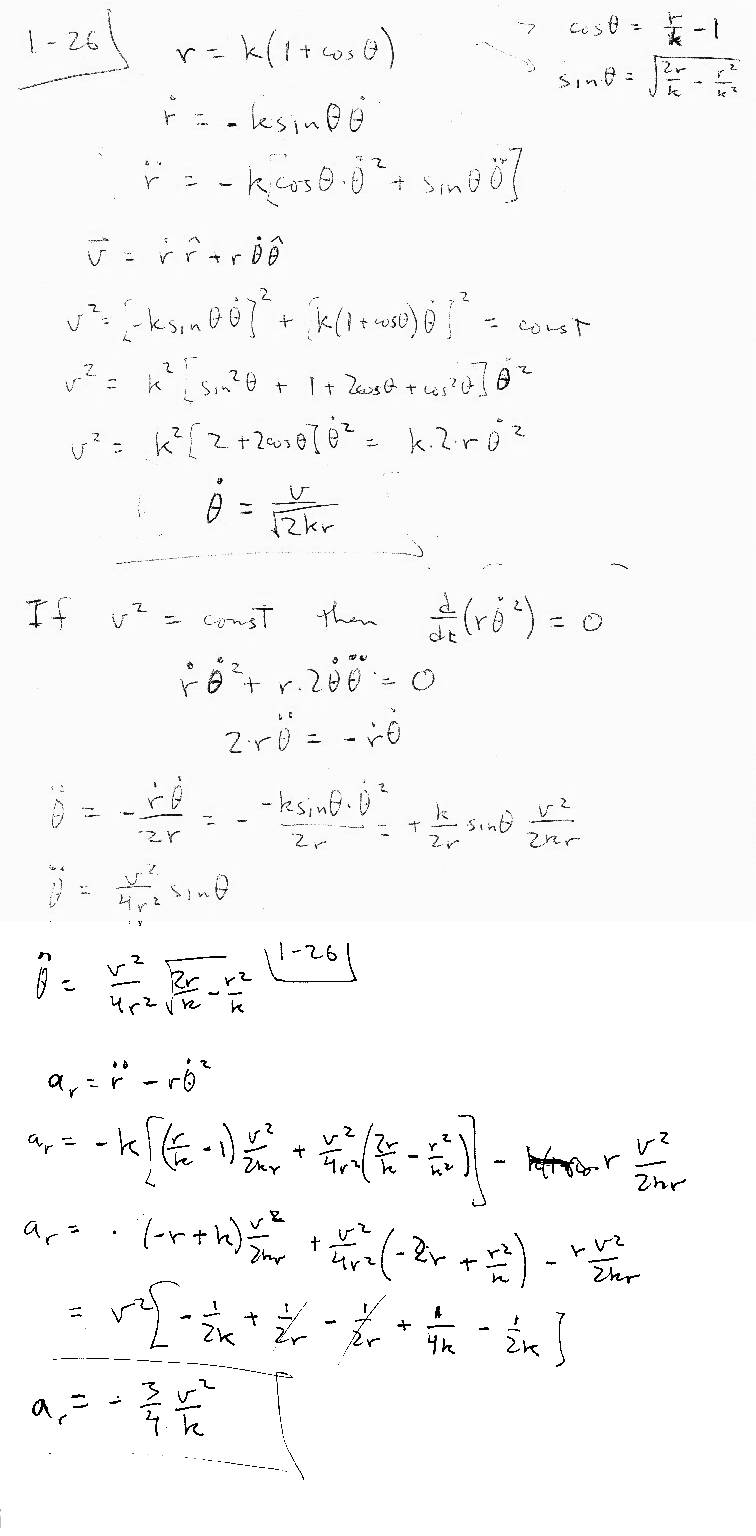 1-26
r = k(1+cosθ)
→ cosθ = r/k - 1
→ sinθ = √(2r/k - r²/k²)
ṙ = -ksinθ θ̇
r̈ = -k[cosθ·θ̇² + sinθ θ̈]
v⃗ = ṙ r̂ + r θ̇ θ̂
v² = [-ksinθ θ̇]² + [k(1+cosθ)θ̇]² = const
v² = k²[sin²θ + 1 + 2cosθ + cos²θ] θ̇²
v² = k²[2 + 2cosθ] θ̇² = k·2·r θ̇²
θ̇ = v/√(2kr)
If v² = const then d/dt(rθ̇²) = 0
ṙ θ̇² + r·2θ̇θ̈ = 0
2·rθ̈ = -ṙθ̇
θ̈ = -ṙθ̇/2r = - -ksinθ·θ̇²/2r = + k/2r sinθ v²/2kr
θ̈ = v²/4r² sinθ
θ̈ = v²/4r² √(2r/k - r²/k) 1-26
a_r = r̈ - rθ̇²
a_r = -k[(r/k - 1) v²/2kr + v²/4r² (2r/k - r²/k²)] - r v²/2kr
a_r = (-r+k) v²/2kr + v²/4r² (-2r + r²/k) - r v²/2kr
= v²[-1/2k + 1/2r - 1/2r + 1/4k - 1/2k]
a_r = - 3/4 v²/k